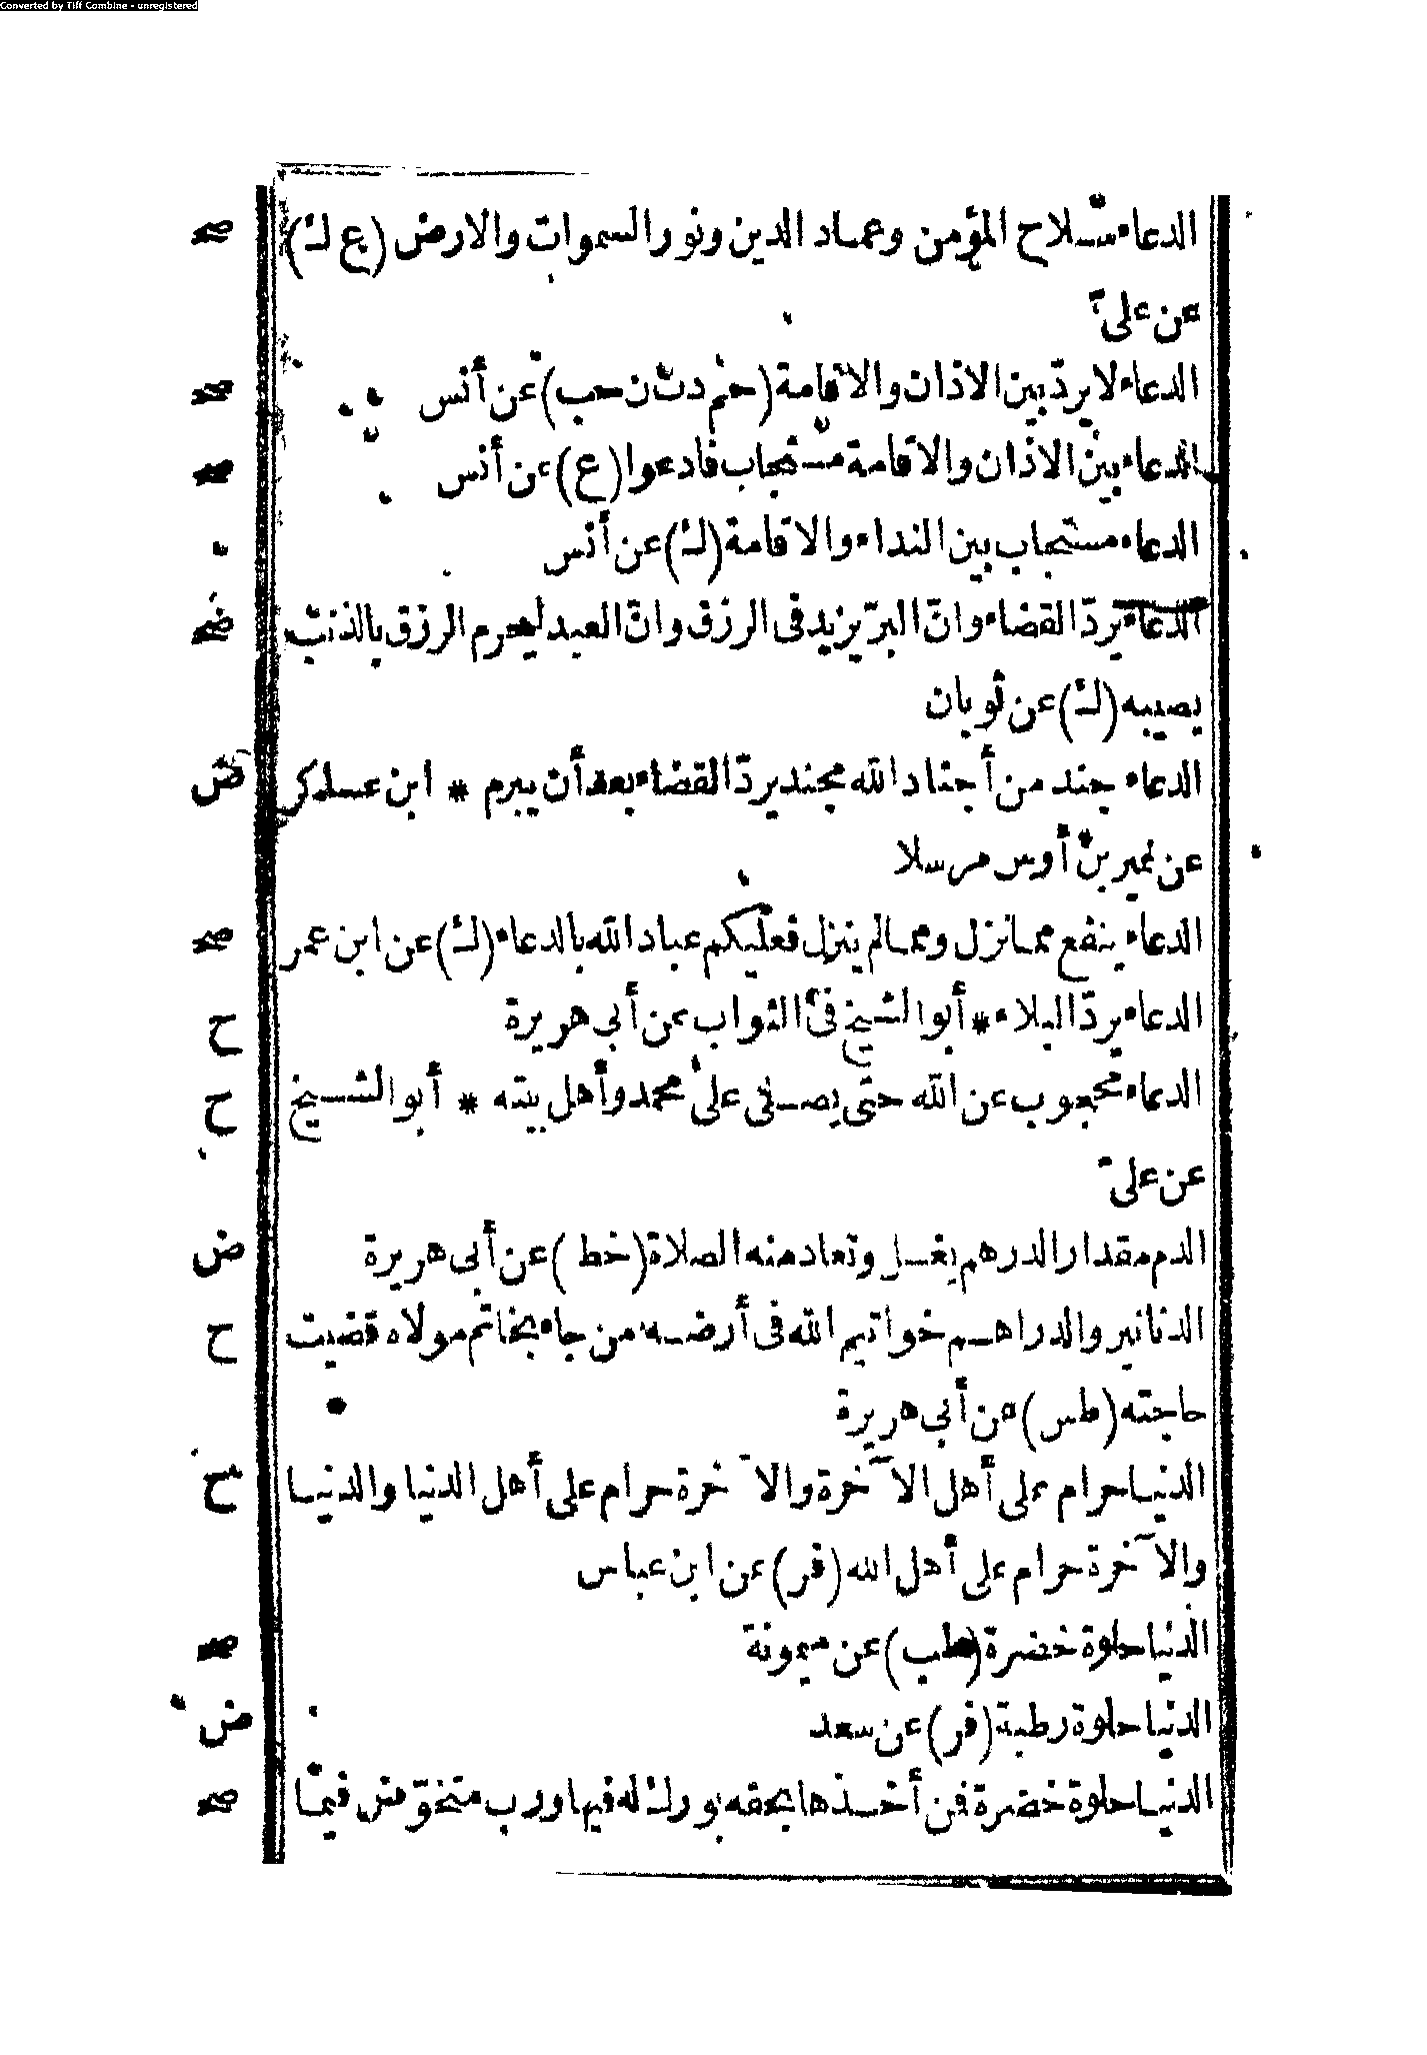 Converted by Tiff Combine - unregistered
الدعاء سلاح المؤمن وعماد الدين ونور السموات والارض (ع ك) صح
عن على
الدعاء لا يردّ بين الاذان والاقامة (حم د ت ن حب) عن أنس صح
الدعاء بين الاذان والاقامة مستجاب فادعوا (ع) عن أنس صح
الدعاء مستجاب بين النداء والاقامة (ك) عن أنس
الدعاء يردّ القضاء وانّ البرّ يزيد فى الرزق وانّ العبد ليحرم الرزق بالذنب صح
يصيبه (ك) عن ثوبان
الدعاء جند من أجناد الله مجند يردّ القضاء بعد أن يبرم * ابن عساكر ض
عن نمير بن أوس مرسلا
الدعاء ينفع مما نزل ومما لم ينزل فعليكم عباد الله بالدعاء (ك) عن ابن عمر صح
الدعاء يردّ البلاء * أبو الشيخ فى الثواب عن أبى هريرة ح
الدعاء محجوب عن الله حتى يصلى على محمد وأهل بيته * أبو الشيخ ح
عن على
الدم مقدار الدرهم يغسل وتعاد منه الصلاة (خط) عن أبى هريرة ض
الدنانير والدراهم خواتيم الله فى أرضه من جاء بخاتم مولاه قضيت ح
حاجته (طس) عن أبى هريرة
الدنيا حرام على أهل الآخرة والآخرة حرام على أهل الدنيا والدنيا ح
والآخرة حرام على أهل الله (فر) عن ابن عباس
الدنيا حلوة خضرة (طب) عن ميمونة صح
الدنيا حلوة رطبة (فر) عن سعد ض
الدنيا حلوة خضرة فمن أخذها بحقه بورك له فيها ورب متخوّض فيما صح